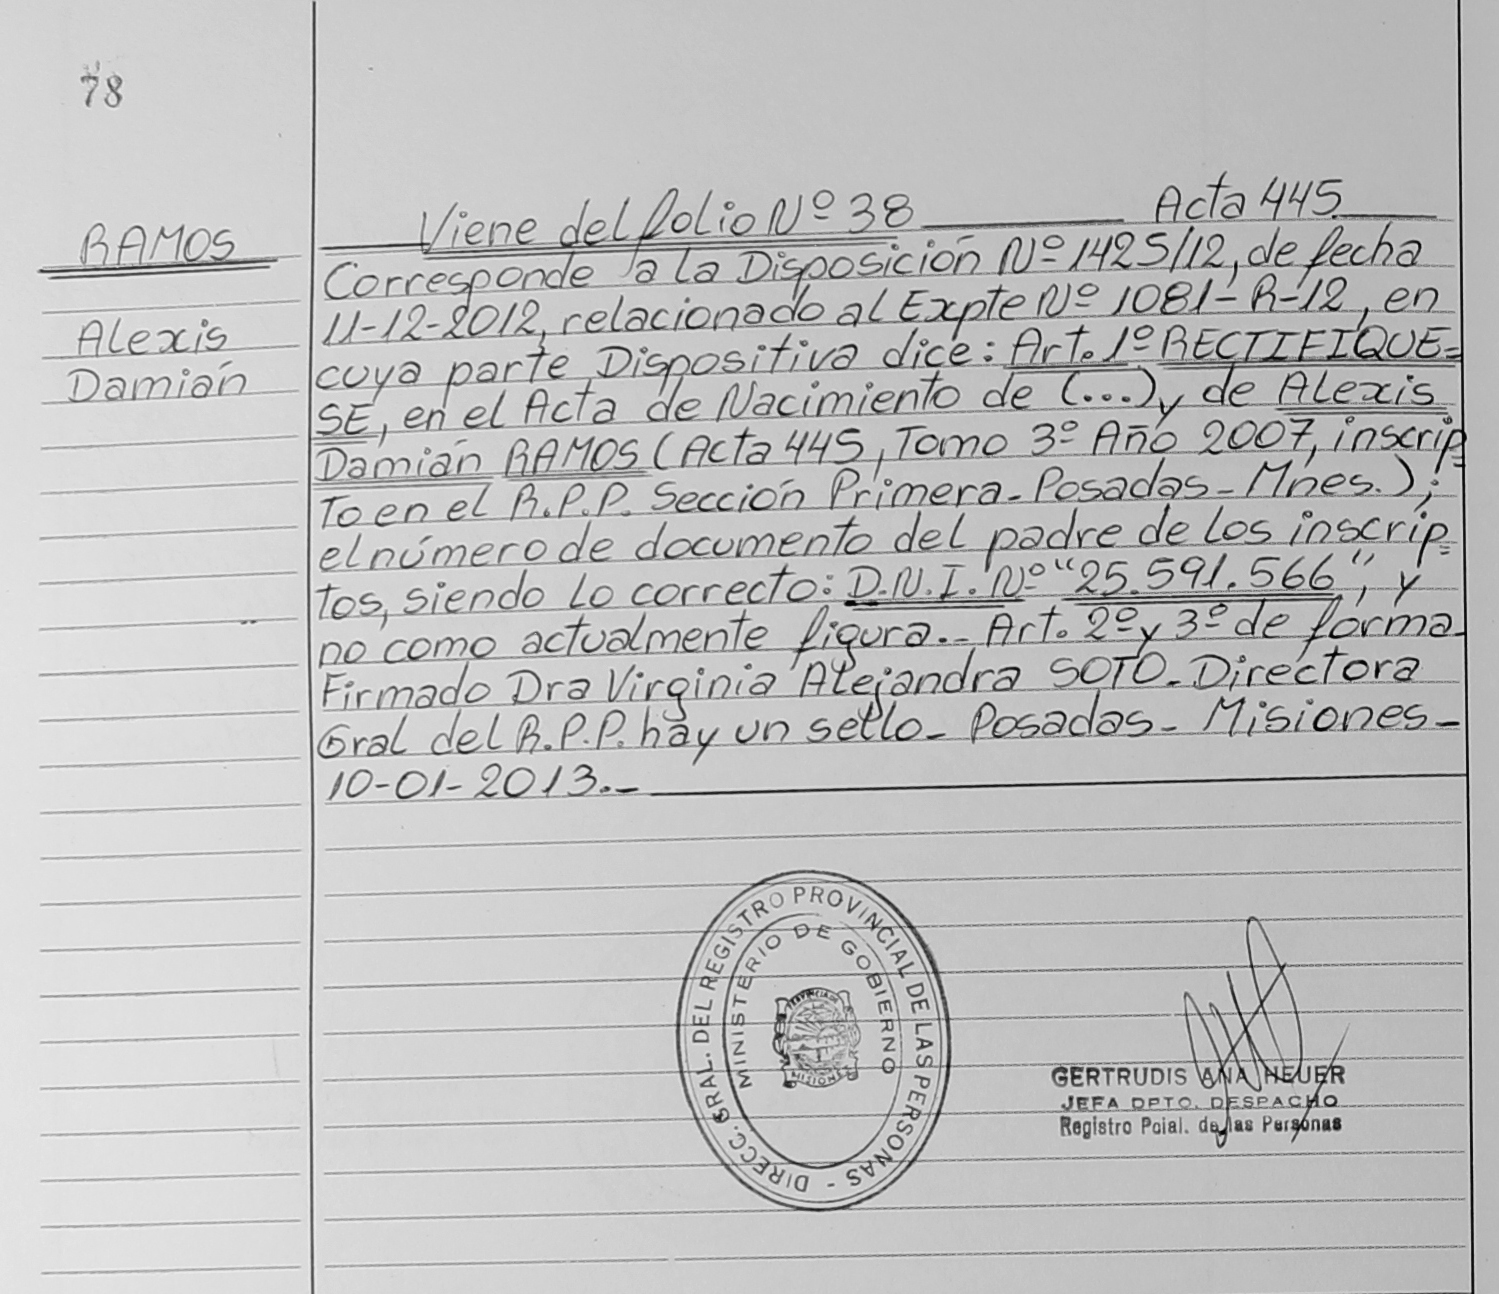 78
RAMOS
Alexis
Damián
Viene del folio Nº 38 Acta 445
Corresponde a la Disposición Nº 1425/12, de fecha
11-12-2012, relacionado al Expte Nº 1081-R-12, en
cuya parte Dispositiva dice: Art. 1º RECTIFIQUE=
SE, en el Acta de Nacimiento de (...) y de Alexis
Damián RAMOS (Acta 445, Tomo 3º Año 2007, inscrip=
to en el R.P.P. Sección Primera - Posadas - Mnes.);
el número de documento del padre de los inscrip=
tos, siendo lo correcto: D.N.I. Nº "25.591.566", y
no como actualmente figura.- Art. 2º y 3º de forma
Firmado Dra Virginia Alejandra SOTO - Directora
Gral del R.P.P. hay un sello - Posadas - Misiones -
10-01-2013.-
DIRECC. GRAL. DEL REGISTRO PROVINCIAL DE LAS PERSONAS -
MINISTERIO DE GOBIERNO
PROVINCIA DE
MISIONES
GERTRUDIS ANA HEUER
JEFA DPTO. DESPACHO
Registro Pcial. de las Personas